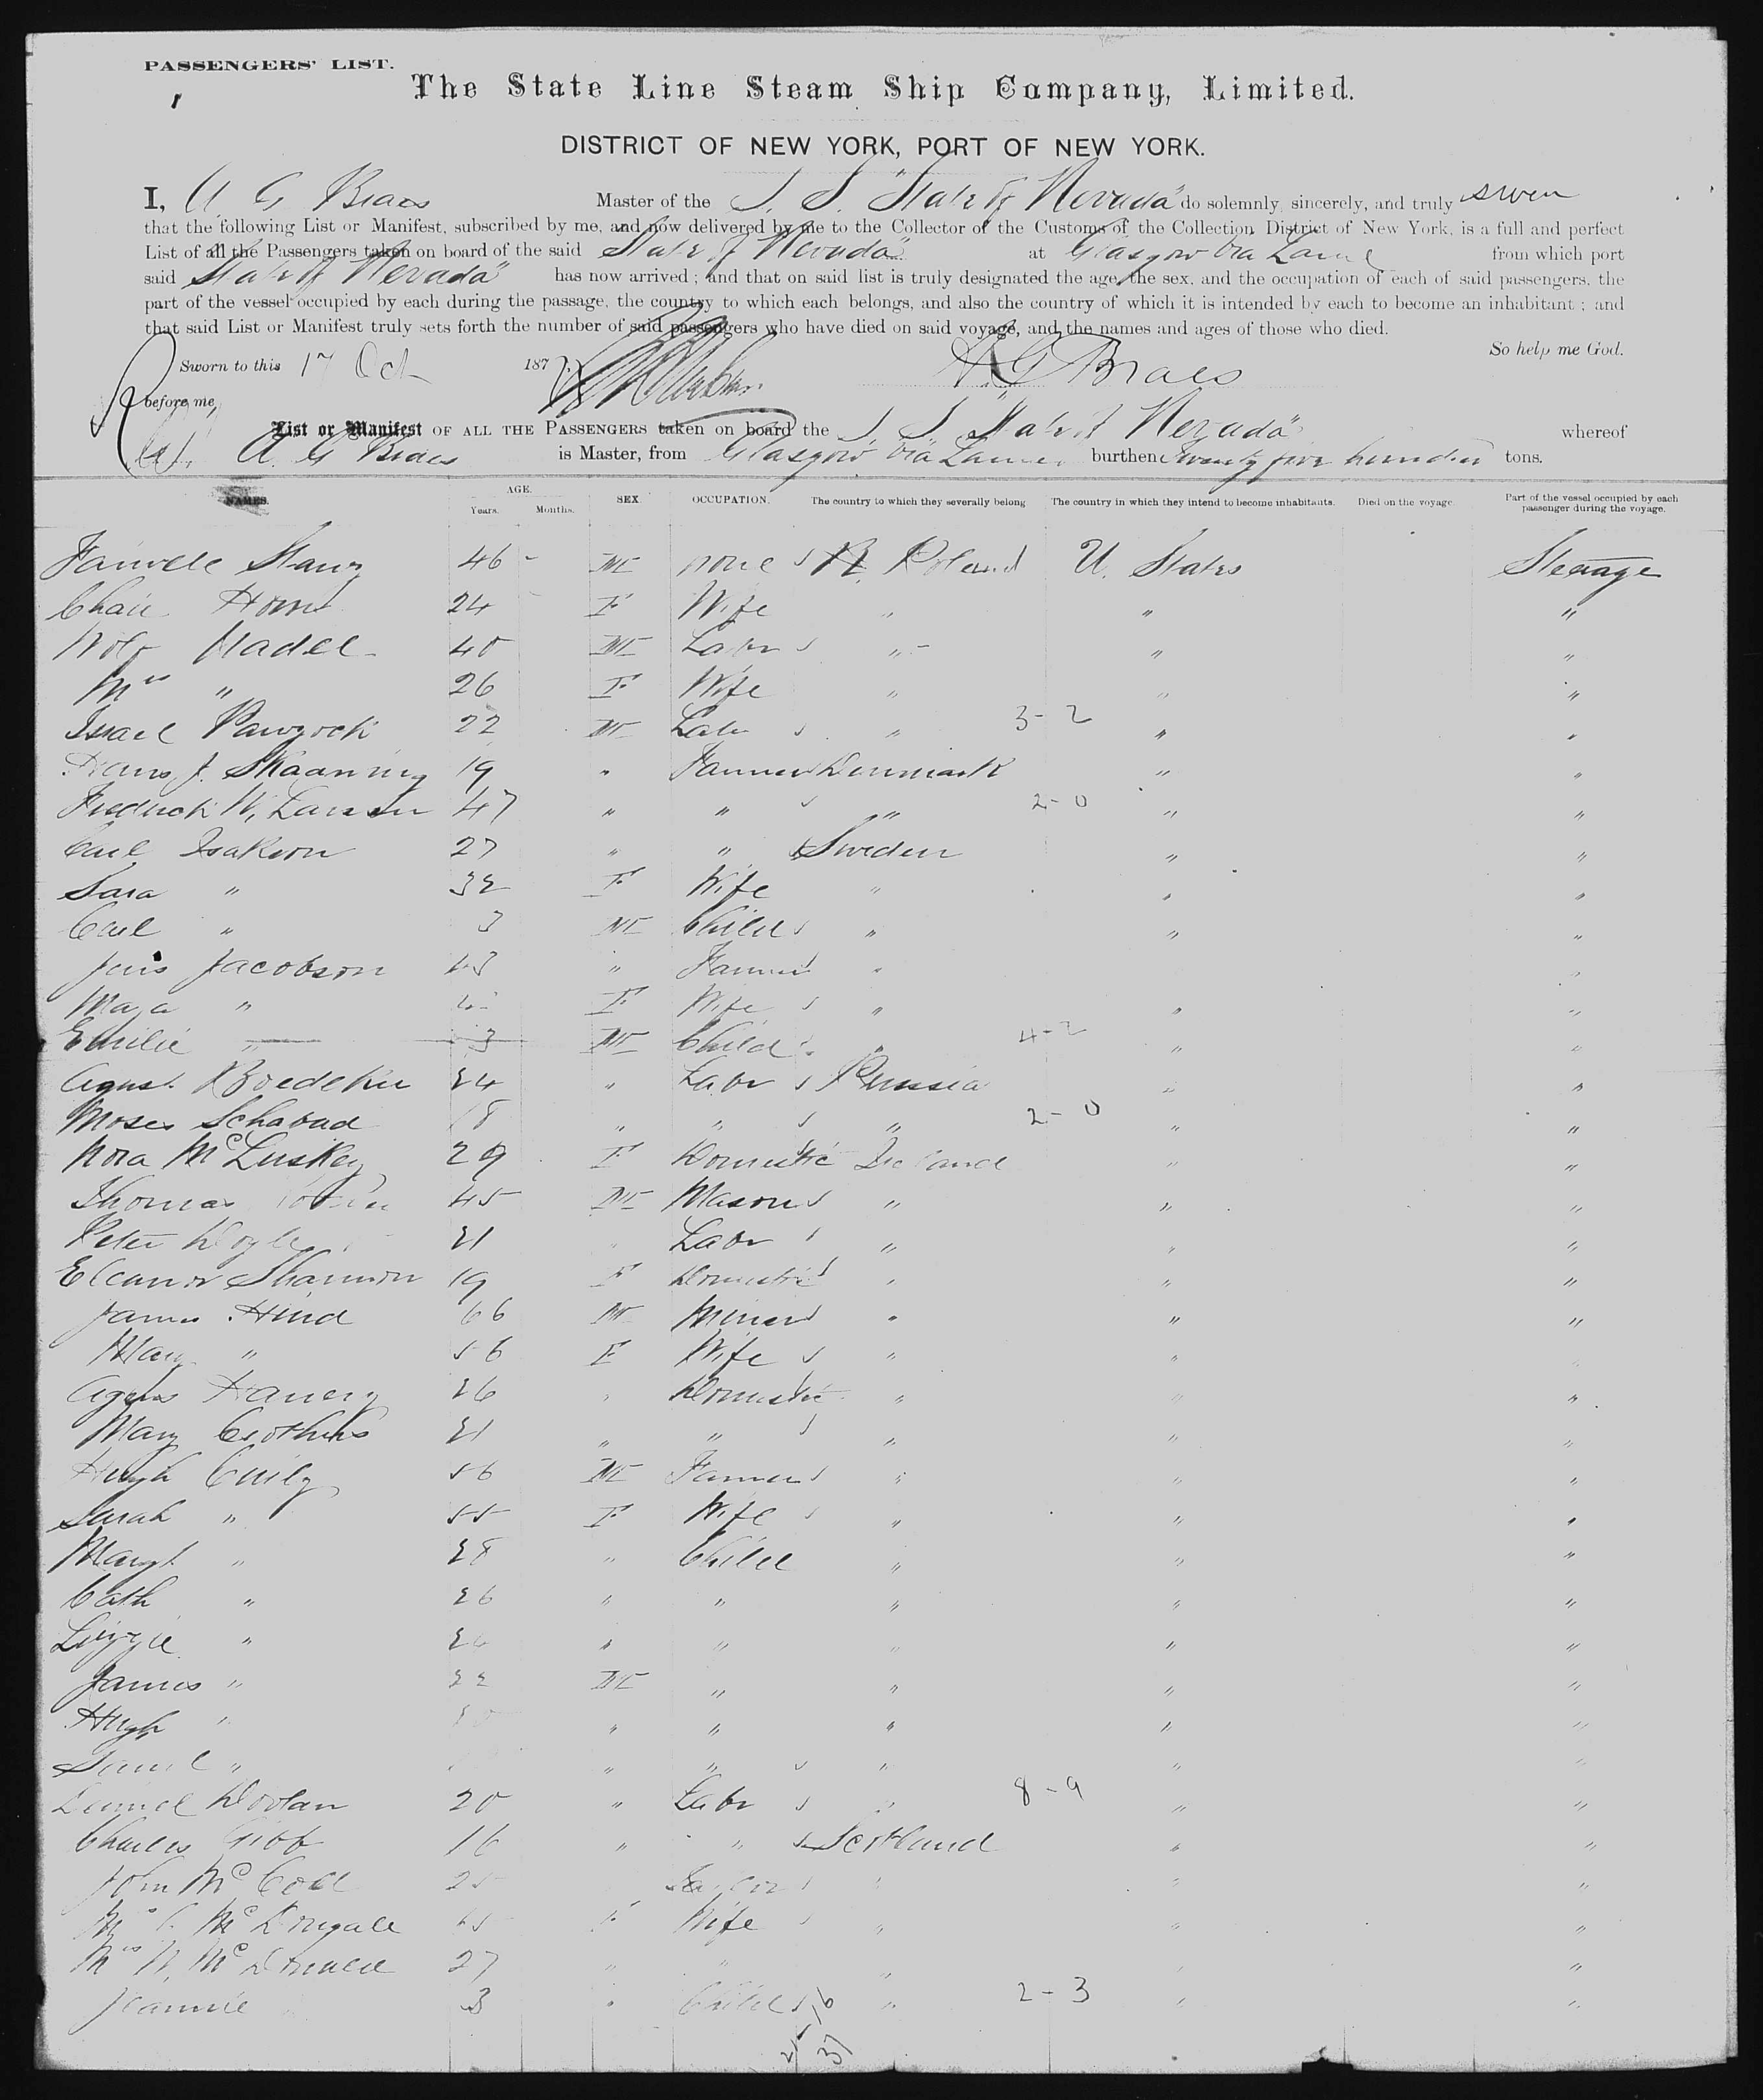 PASSENGERS' LIST.
1
The State Line Steam Ship Company, Limited.
DISTRICT OF NEW YORK, PORT OF NEW YORK.
I, A G Braes Master of the S. S. "State of Nevada" do solemnly, sincerely, and truly swear
that the following List or Manifest, subscribed by me, and now delivered by me to the Collector of the Customs of the Collection District of New York, is a full and perfect
List of all the Passengers taken on board of the said "State of Nevada" at Glasgow via Larne from which port
said "State of Nevada" has now arrived; and that on said list is truly designated the age, the sex, and the occupation of each of said passengers, the
part of the vessel occupied by each during the passage, the country to which each belongs, and also the country of which it is intended by each to become an inhabitant; and
that said List or Manifest truly sets forth the number of said passengers who have died on said voyage, and the names and ages of those who died.
So help me God.
Sworn to this 17 Oct 187 A G Braes
before me,
List or Manifest OF ALL THE PASSENGERS taken on board the S. S. "State of Nevada" whereof
A. G Braes is Master, from Glasgow via Larne burthen Twenty five hundred tons.
NAMES. AGE. Years. Months. SEX. OCCUPATION. The country to which they severally belong The country in which they intend to become inhabitants. Died on the voyage. Part of the vessel occupied by each passenger during the voyage.
46 M none Poland U. States Steerage
24 F Wife " " "
Nadel 40 M Labr " " "
Mrs " 26 F Wife " " "
Israel 22 M Labr " 3-2 " "
Hans J. Skaanning 19 " Farmer Denmark " "
Fredrick W. Larsen 47 " " " 2-0 " "
Carl Isakson 27 " " Sweden " "
Sara " 32 F Wife " " "
Carl " 3 M Child " " "
Jacobson " Farmer "
Maja " F Wife " " "
Emilie " 3 M Child " 4-2 " "
August Boedeker 24 " Labr Russia " "
Moses Schabad 18 " " " 2-0 " "
Nora McLuskey 29 F Domestic Ireland " "
Thomas 45 M Mason " " "
Peter Doyle 21 " Labr " " "
Eleanor Shannon 19 F Domestic " " "
James Hind 66 M Miner " " "
Mary " 56 F Wife " "
Agnes 26 " Domestic " " "
Mary Crothers 21 " " " " "
Hugh 56 M Farmer " " "
Sarah " 55 F Wife " " "
Margt " 28 " Child " " "
Cath " 26 " " " " "
Lizzie " " " " " "
James " 22 M " " " "
Hugh " " " " " "
Saml " " " " " "
Doolan 20 " Labr " 8-9 " "
Charles Gibb 16 " " Scotland " "
John McCool 25 " " "
McDougall F Wife " " "
Mrs 27 " " " " "
Jeannie 3 " Child " 2-3 " "